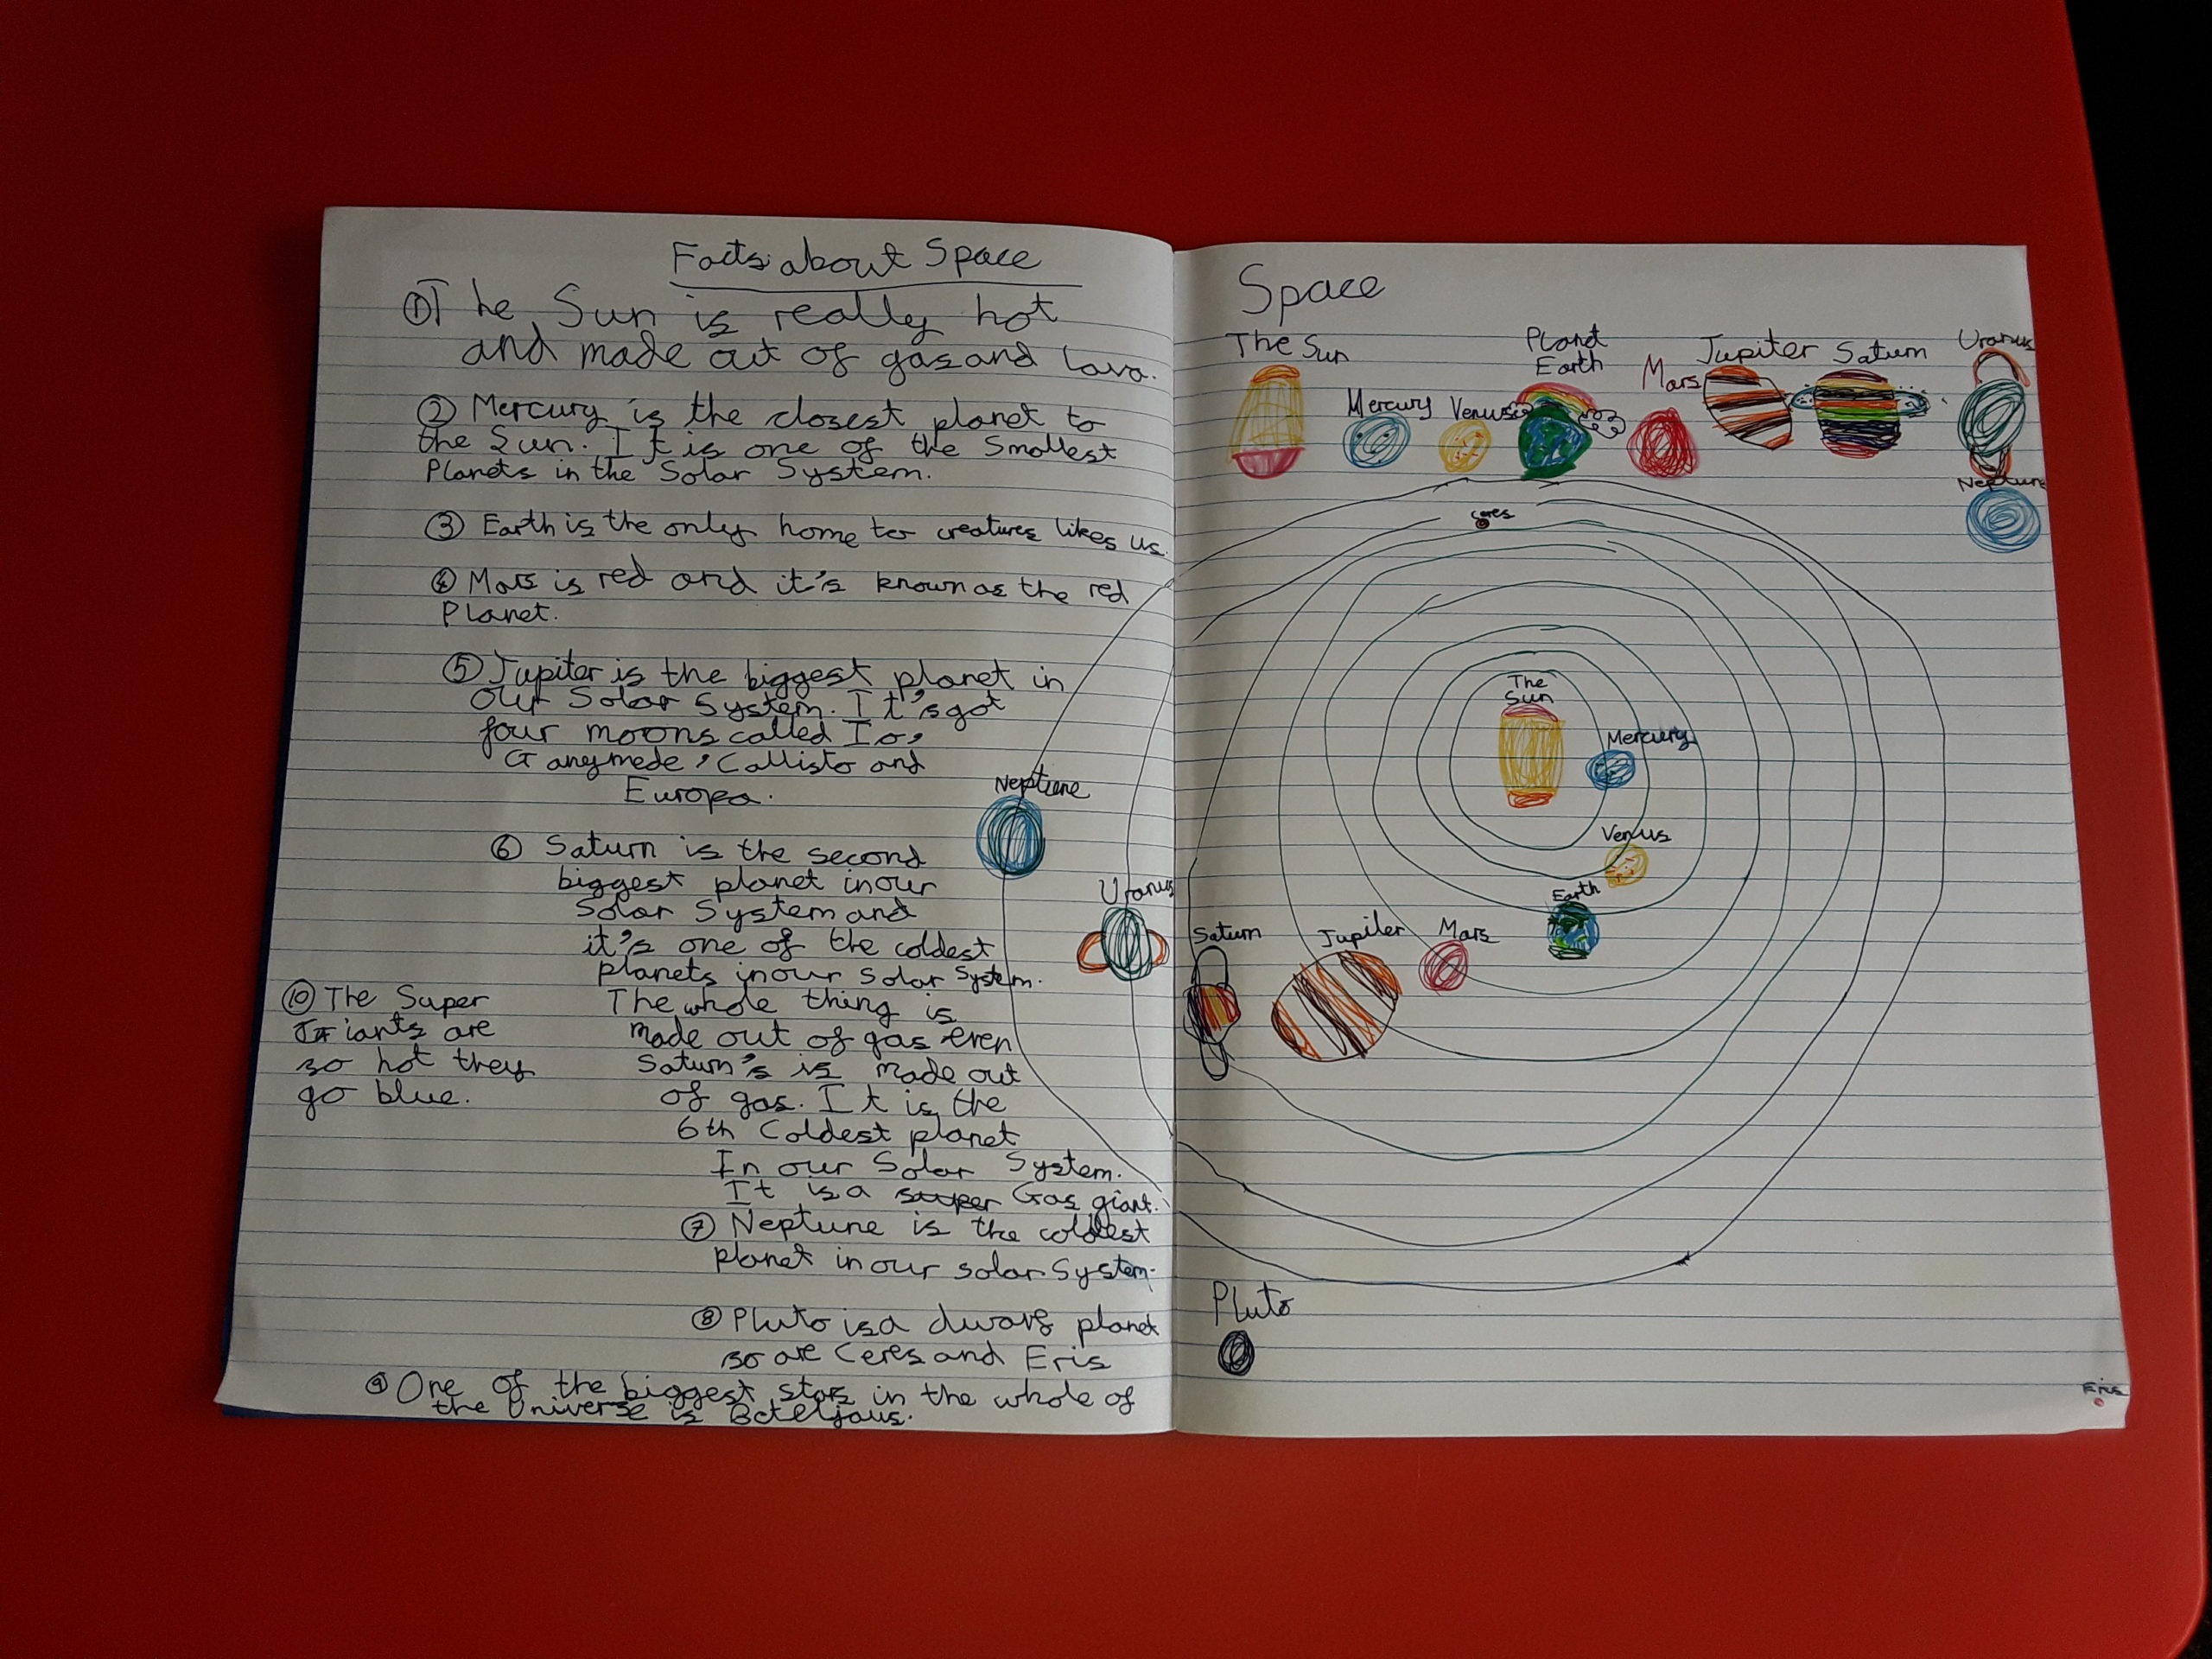 Facts about Space
① The Sun is really hot
and made out of gas and lava.
② Mercury is the closest planet to
the Sun. It is one of the Smallest
Planets in the Solar System.
③ Earth is the only home to creatures likes us.
④ Mars is red and it's known as the red
Planet.
⑤ Jupiter is the biggest planet in
our Solar System. It's got
four moons called Io,
Ganymede, Callisto and
Europa.
⑥ Saturn is the second
biggest planet in our
Solar System and
it's one of the coldest
planets in our Solar System.
The whole thing is
made out of gas even
Saturn's is made out
of gas. It is the
6th Coldest planet
In our Solar System.
It is a super Gas giant.
⑦ Neptune is the coldest
planet in our solar System.
⑧ Pluto is a dwarf planet
so are Ceres and Eris
⑨ One of the biggest stars in the whole of
the Universe is Beteljaus.
⑩ The Super
Giants are
so hot they
go blue.
Space
The Sun
Mercury
Venus
Planet
Earth
Mars
Jupiter
Saturn
Uranus
Neptune
Ceres
The
Sun
Mercury
Venus
Earth
Mars
Jupiter
Saturn
Uranus
Neptune
Pluto
Eris